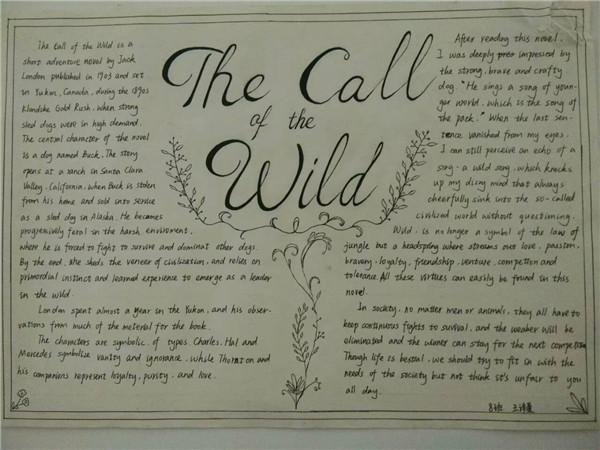 The Call
of the
Wild
The Call of the Wild is a
short adventure novel by Jack
London published in 1903 and set
in Yukon, Canada, during the 1890s
Klondike Gold Rush, when strong
sled dogs were in high demand.
The central character of the novel
is a dog named Buck. The story
opens at a ranch in Santa Clara
Valley, California, when Buck is stolen
from his home and sold into service
as a sled dog in Alaska. He becomes
progressively feral in the harsh enviroment,
where he is forced to fight to survive and dominat other dogs.
By the end, she sheds the veneer of civilization, and relies on
primordial instinct and learned experience to emerge as a leader
in the wild.
London spent almost a year in the Yukon, and his obser-
vations from much of the meterial for the book.
The characters are symbolic of types. Charles, Hal and
Mercedes symbolize vanity and ignorance, while Thornton and
his companions represent loyalty, purity, and love.
After reading this novel,
I was deeply impressed by
the strong, brave and crafty
dog. "He sings a song of youn-
ger world, which is the song of
the pack." When the last sen-
tence vanished from my eyes,
I can still perceive an echo of a
song - a wild song, which knocks
up my dicing mind that always
cheerfully sink into the so-called
civilized world without questioning.
Wild, is no longer a symbol of the law of
jungle but a headspring where streams out love, passion,
bravery, loyalty, friendship, venture, competion and
tolerance. All these virtues can easily be found in this
novel.
In society, no matter men or animals, they all have to
keep continuous fights to survival, and the weaker will be
eliminated and the winner can stay for the next competition
Though life is bestial, we should try to fit in with the
needs of the society but not think it's unfair to you
all day.
8班 王诗蔓